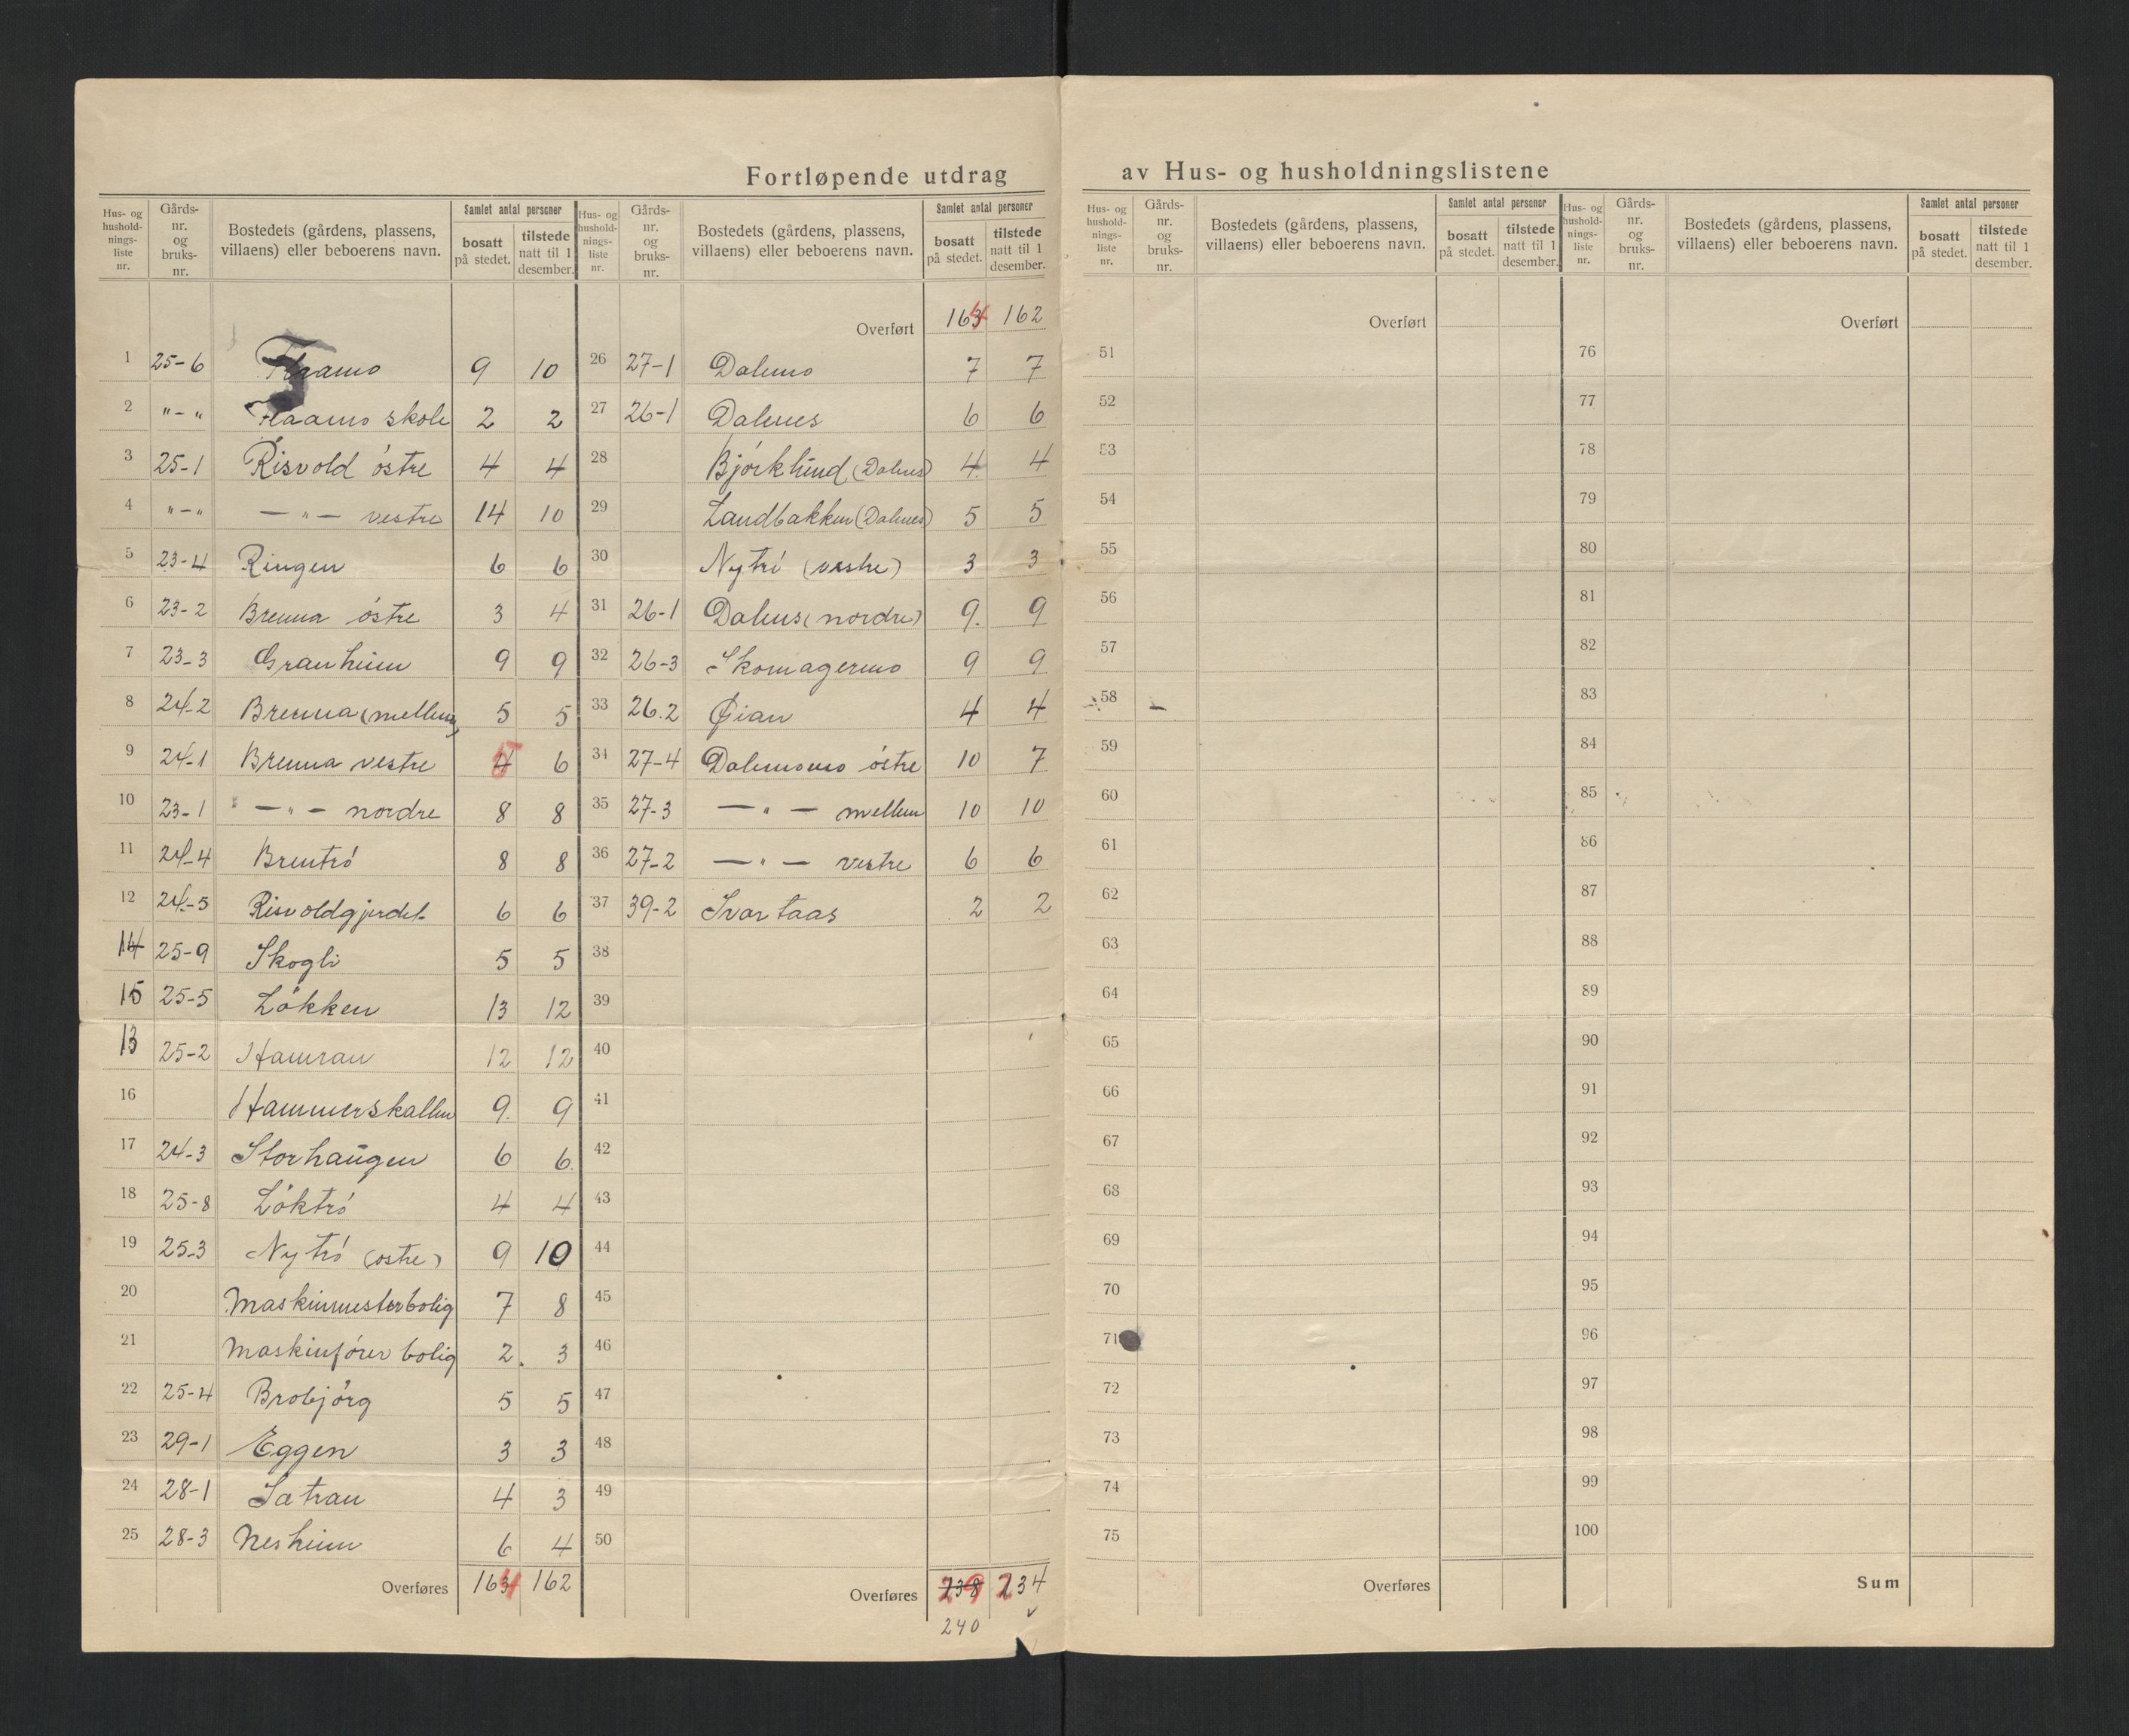 Fortløpende utdrag av Hus- og husholdningslistene
Hus- og hushold-nings-liste nr. Gårds-nr. og bruks-nr. Bostedets (gårdens, plassens, villaens) eller beboerens navn. Samlet antal personer bosatt på stedet. tilstede natt til 1 desember.
1 25-6 Flaamo 9 10
2 "-" Flaamo skole 2 2
3 25-1 Risvold östre 4 4
4 "-" —"— vestre 14 10
5 23-4 Ringen 6 6
6 23-2 Brenna östre 3 4
7 23-3 Granheim 9 9
8 24-2 Brenna (mellem) 5 5
9 24-1 Brenna vestre 5 6
10 23-1 —"— nordre 8 8
11 24-4 Brentrö 8 8
12 24-5 Risvoldgjerdet 6 6
14 25-9 Skogli 5 5
15 25-5 Lökken 13 12
13 25-2 Hamran 12 12
16 Hammerskallen 9. 9
17 24-3 Storhaugen 6 6.
18 25-8 Löktrö 4 4
19 25-3 Nytrö (östre) 9 10
20 Maskinmesterbolig 7 8
21 Maskinförer bolig 2. 3
22 25-4 Brobjörg 5 5
23 29-1 Eggen 3 3
24 28-1 Satran 4 3
25 28-3 Nesheim 6 4
Overføres 164 162
Hus- og hushold-nings-liste nr. Gårds-nr. og bruks-nr. Bostedets (gårdens, plassens, villaens) eller beboerens navn. Samlet antal personer bosatt på stedet. tilstede natt til 1 desember.
Overført 164 162
26 27-1 Dalemo 7 7
27 26-1 Dalenes 6 6
28 Björklund (Dalenes) 4 4
29 Landbakken (Dalenes) 5 5
30 Nytrö (vestre) 3 3
31 26-1 Dalenes (nordre) 9. 9
32 26-3 Skomagermo 9 9
33 26.2 Øian 4 4
34 27-4 Dalemomo östre 10 7
35 27-3 —"— mellem 10 10
36 27-2 —"— vestre 6 6
37 39-2 Svartaas 2 2
38
39
40
41
42
43
44
45
46
47
48
49
50
Overføres 238 234
240
Hus- og hushold-nings-liste nr. Gårds-nr. og bruks-nr. Bostedets (gårdens, plassens, villaens) eller beboerens navn. Samlet antal personer bosatt på stedet. tilstede natt til 1 desember.
Overført
51
52
53
54
55
56
57
58
59
60
61
62
63
64
65
66
67
68
69
70
71
72
73
74
75
Overføres
Hus- og hushold-nings-liste nr. Gårds-nr. og bruks-nr. Bostedets (gårdens, plassens, villaens) eller beboerens navn. Samlet antal personer bosatt på stedet. tilstede natt til 1 desember.
Overført
76
77
78
79
80
81
82
83
84
85
86
87
88
89
90
91
92
93
94
95
96
97
98
99
100
Sum